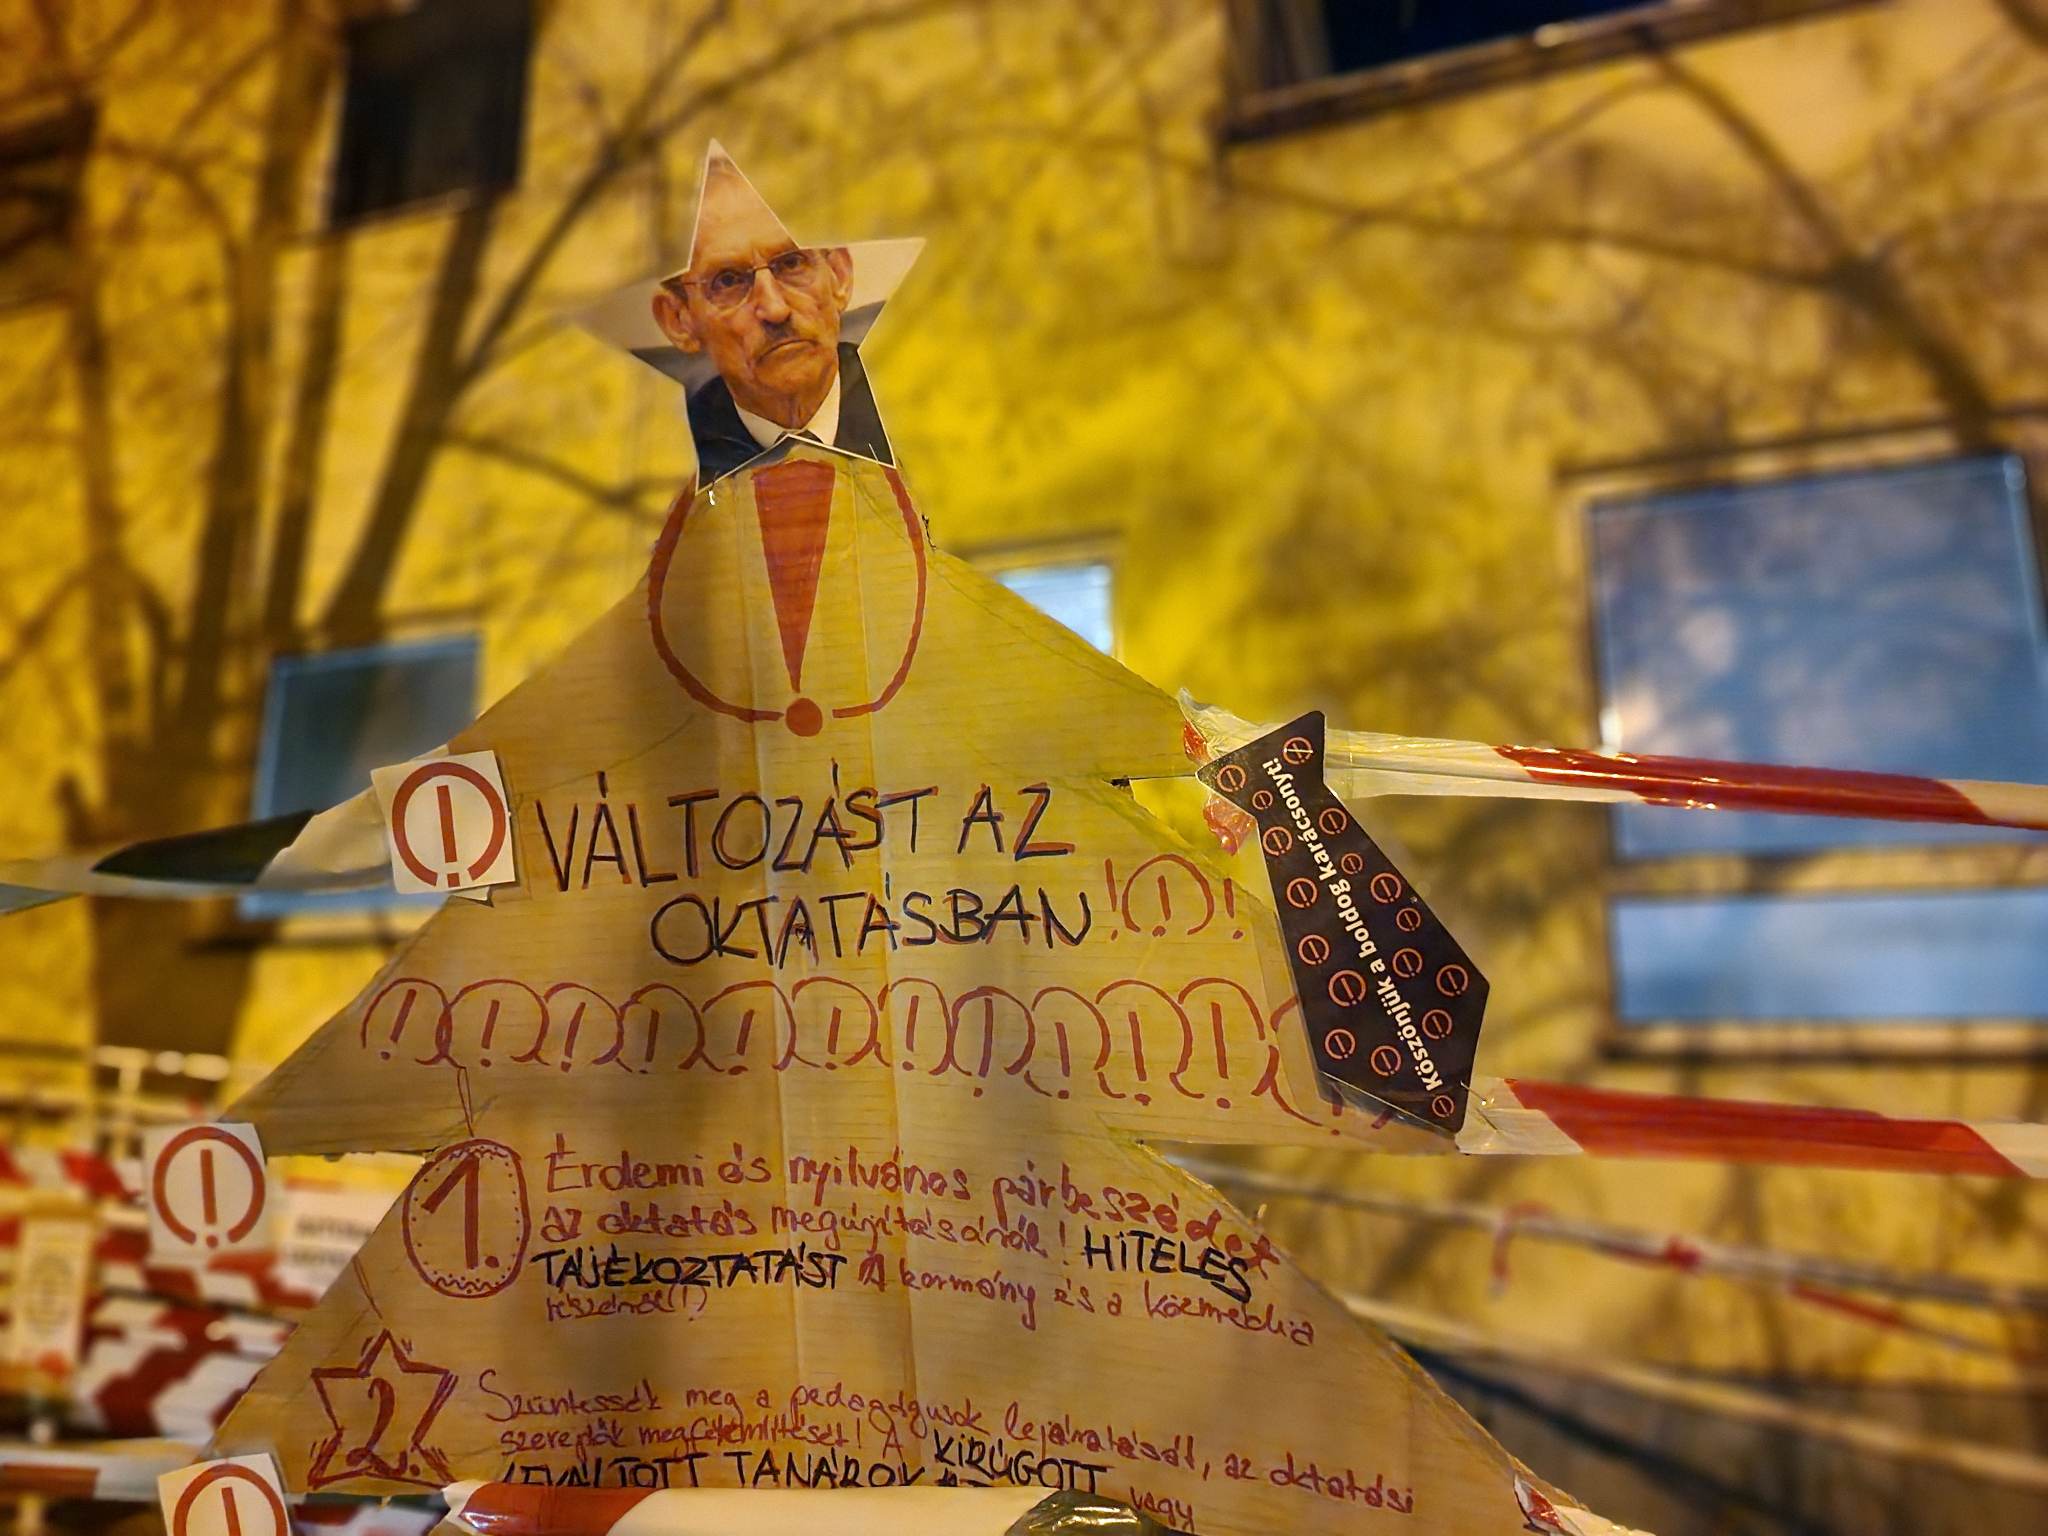 VÁLTOZÁST AZ
OKTATÁSBAN!
Köszönjük a boldog karácsonyt!
1. Érdemi és nyilvános párbeszédet
az oktatás megújításának! HITELES
TÁJÉKOZTATÁST A kormány és a közmédia
részéről(!)
2. Szüntessék meg a pedagógusok lejáratását, az oktatási
szereplők megfélemlítését! A KIRÚGOTT vagy
LEVÁLTOTT TANÁROK